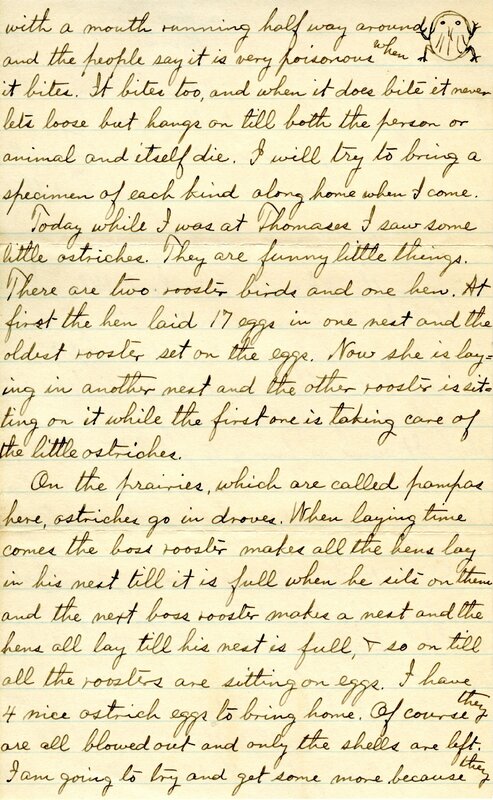 with a mouth running half way around
and the people say it is very poisonous when
it bites. It bites too, and when it does bite it never
lets loose but hangs on till both the person or
animal and itself die. I will try to bring a
specimen of each kind along home when I come.
Today while I was at Thomases I saw some
little ostriches. They are funny little things.
There are two rooster birds and one hen. At
first the hen laid 17 eggs in one nest and the
oldest rooster set on the eggs. Now she is lay=
ing in another nest and the other rooster is sit=
ting on it while the first one is taking care of
the little ostriches.
On the prairies, which are called pampas
here, ostriches go in droves. When laying time
comes the boss rooster makes all the hens lay
in his nest till it is full when he sits on them
and the next boss rooster makes a nest and the
hens all lay till his nest is full, & so on till
all the roosters are sitting on eggs. I have
4 nice ostrich eggs to bring home. Of course they
are all blowed out and only the shells are left.
I am going to try and get some more because they